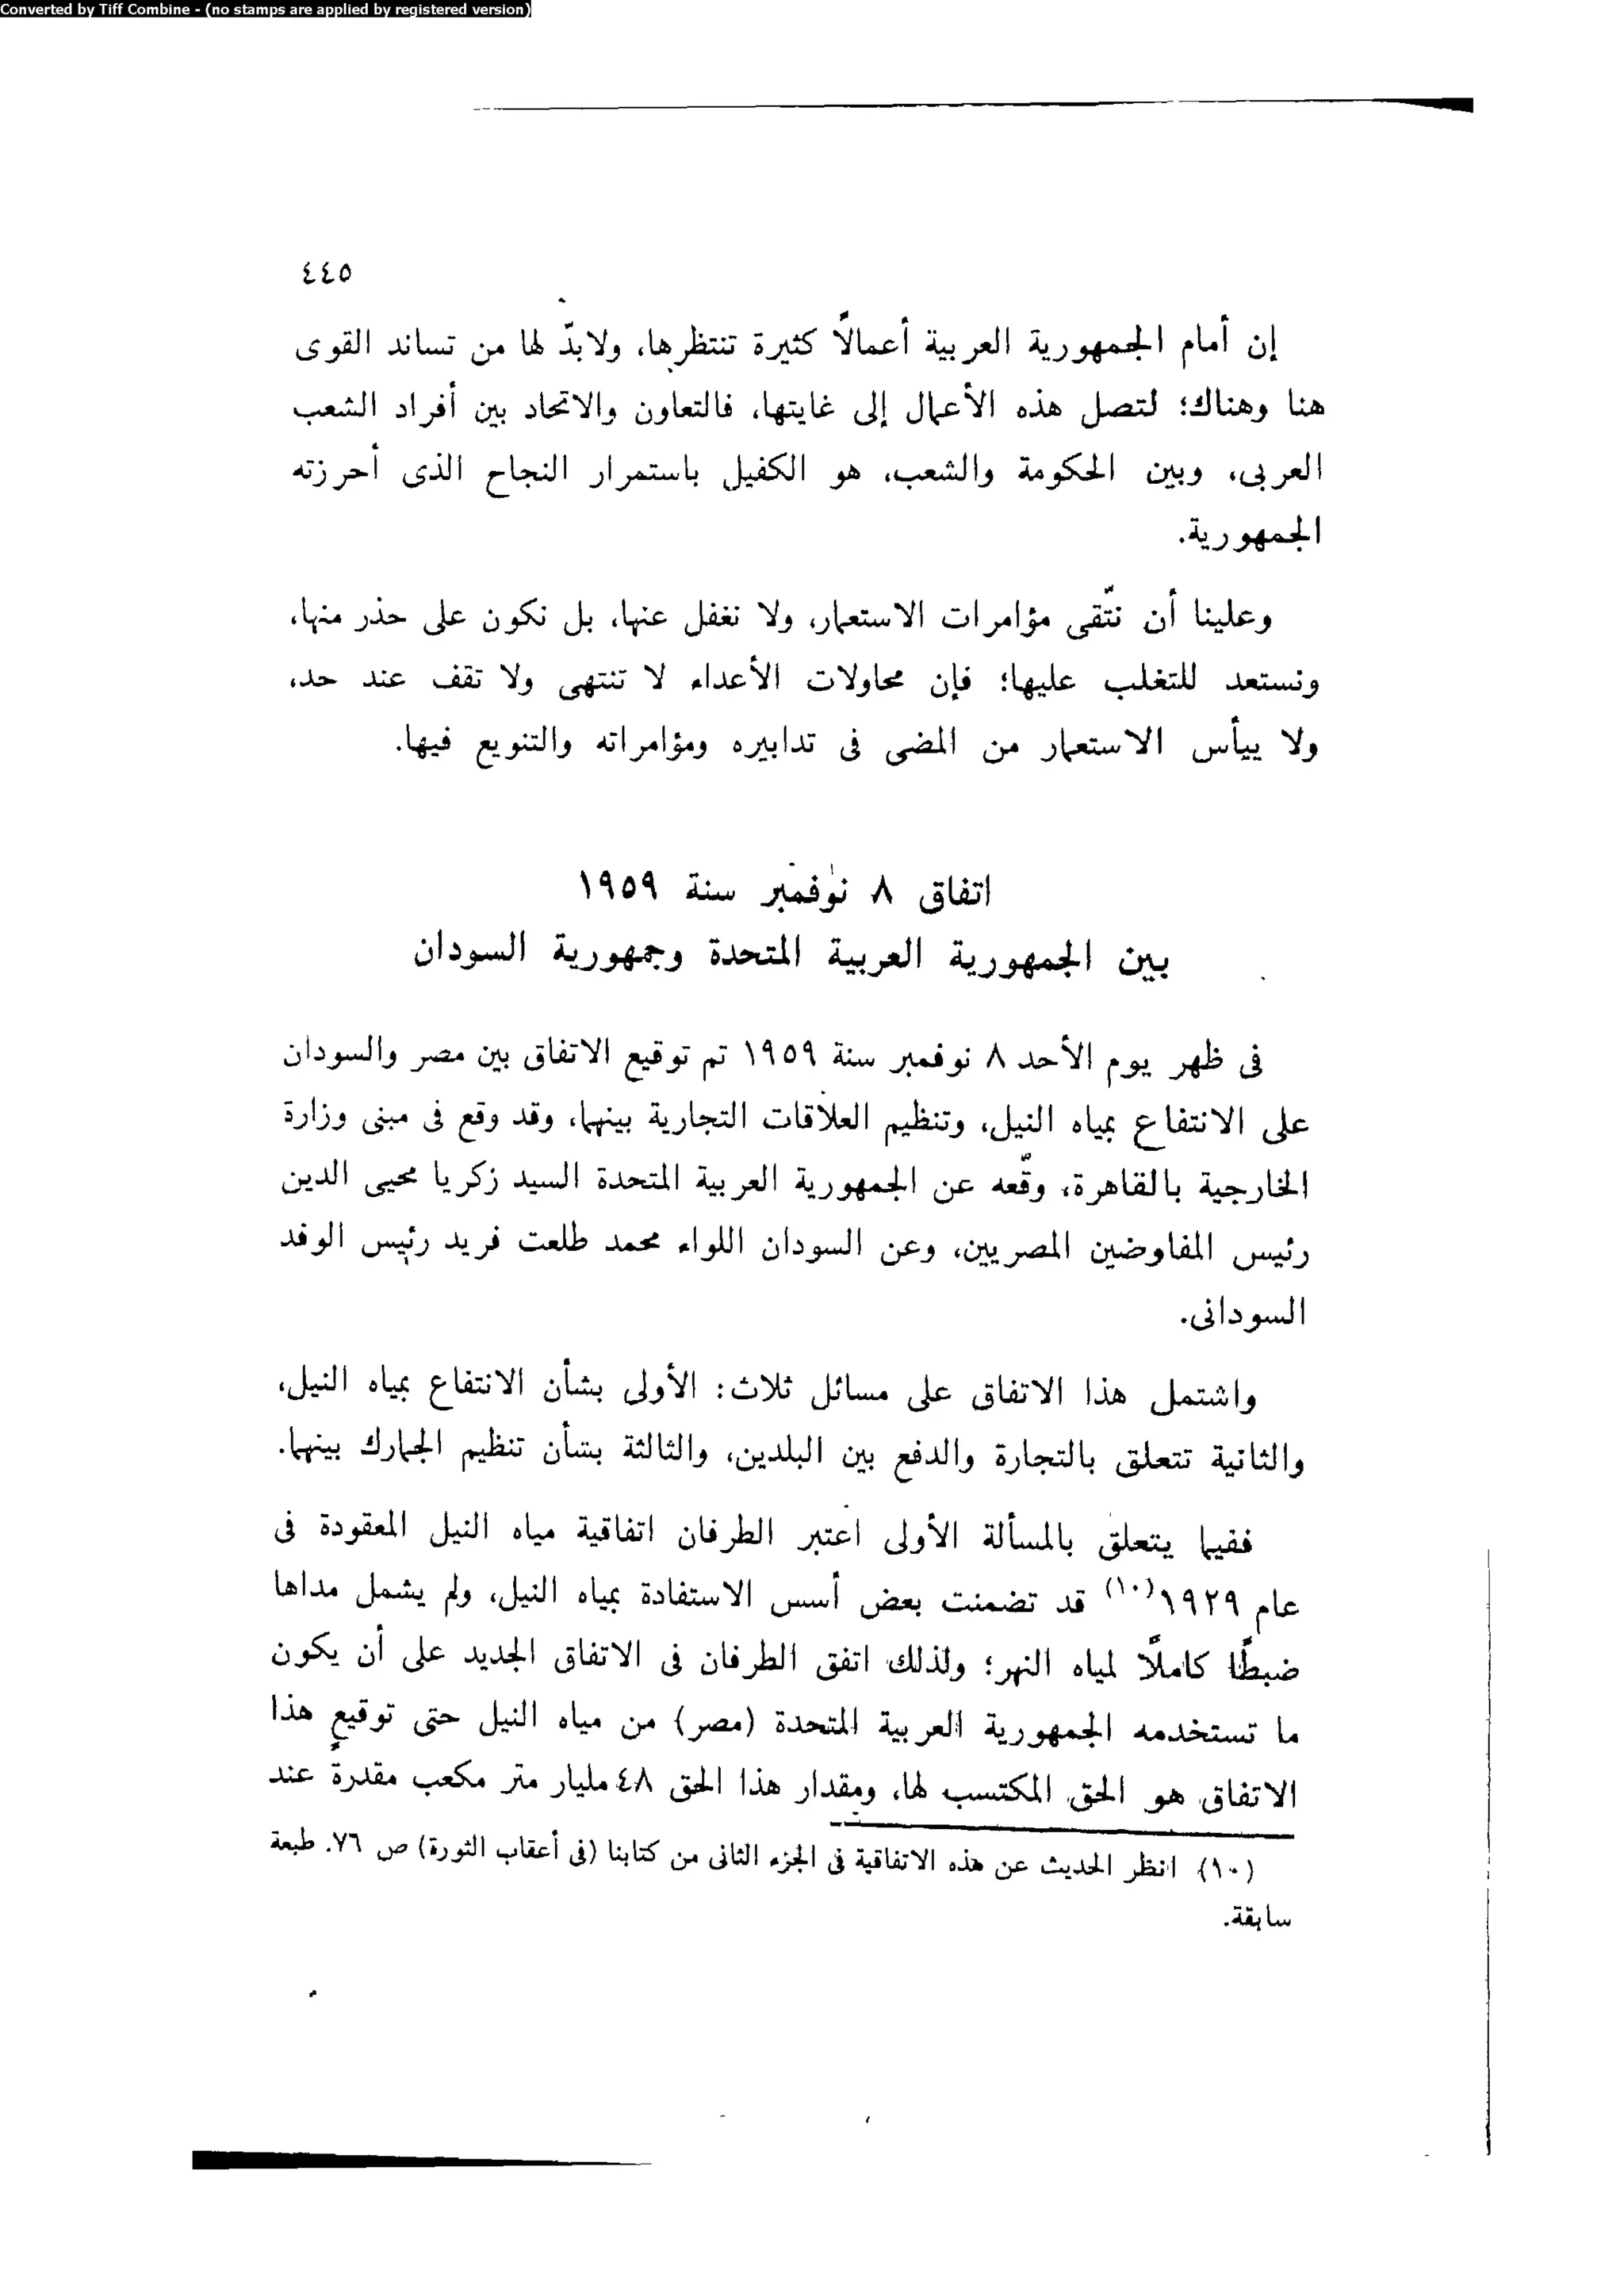 Converted by Tiff Combine - (no stamps are applied by registered version)
٤٤٥
إن أمام الجمهورية العربية أعمالًا كثيرة تنتظرها، ولابدّ لها من تساند القوى
هنا وهناك؛ لتصل هذه الأعمال إلى غايتها، فالتعاون والاتحاد بين أفراد الشعب
العربى، وبين الحكومة والشعب، هو الكفيل باستمرار النجاح الذى أحرزته
الجمهورية.
وعلينا أن نتّقى مؤامرات الاستعمار، ولا نغفل عنها، بل نكون على حذر منها،
ونستعد للتغلب عليها؛ فإن محاولات الأعداء لا تنتهى ولا تقف عند حد،
ولا ييأس الاستعمار من المضى فى تدابيره ومؤامراته والتنويع فيها.
اتفاق ٨ نوفمبر سنة ١٩٥٩
بين الجمهورية العربية المتحدة وجمهورية السودان
فى ظهر يوم الأحد ٨ نوفمبر سنة ١٩٥٩ تم توقيع الاتفاق بين مصر والسودان
على الانتفاع بمياه النيل، وتنظيم العلاقات التجارية بينهما، وقد وقع فى مبنى وزارة
الخارجية بالقاهرة، وقّعه عن الجمهورية العربية المتحدة السيد زكريا محيى الدين
رئيس المفاوضين المصريين، وعن السودان اللواء محمد طلعت فريد رئيس الوفد
السودانى.
واشتمل هذا الاتفاق على مسائل ثلاث: الأولى بشأن الانتفاع بمياه النيل،
والثانية تتعلق بالتجارة والدفع بين البلدين، والثالثة بشأن تنظيم الجمارك بينهما.
ففيما يتعلق بالمسألة الأولى اعتبر الطرفان اتفاقية مياه النيل المعقودة فى
عام ١٩٢٩(١٠) قد تضمنت بعض أسس الاستفادة بمياه النيل، ولم يشمل مداها
ضبطًا كاملًا لمياه النهر؛ ولذلك اتفق الطرفان فى الاتفاق الجديد على أن يكون
ما تستخدمه الجمهورية العربية المتحدة (مصر) من مياه النيل حتى توقيع هذا
الاتفاق هو الحق المكتسب لها، ومقدار هذا الحق ٤٨ مليار متر مكعب مقدرةً عند
(١٠) انظر الحديث عن هذه الاتفاقية فى الجزء الثانى من كتابنا (فى أعقاب الثورة) ص ٧٦. طبعة
سابقة.